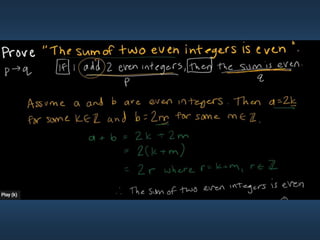 Prove "The sum of two even integers is even".
p→q If I add 2 even integers, then the sum is even.
p q
Assume a and b are even integers. Then a=2k
for some k∈ℤ and b=2m for some m∈ℤ.
a+b = 2k+2m
= 2(k+m)
= 2r where r=k+m, r∈ℤ
∴ The sum of two even integers is even
Play (k)